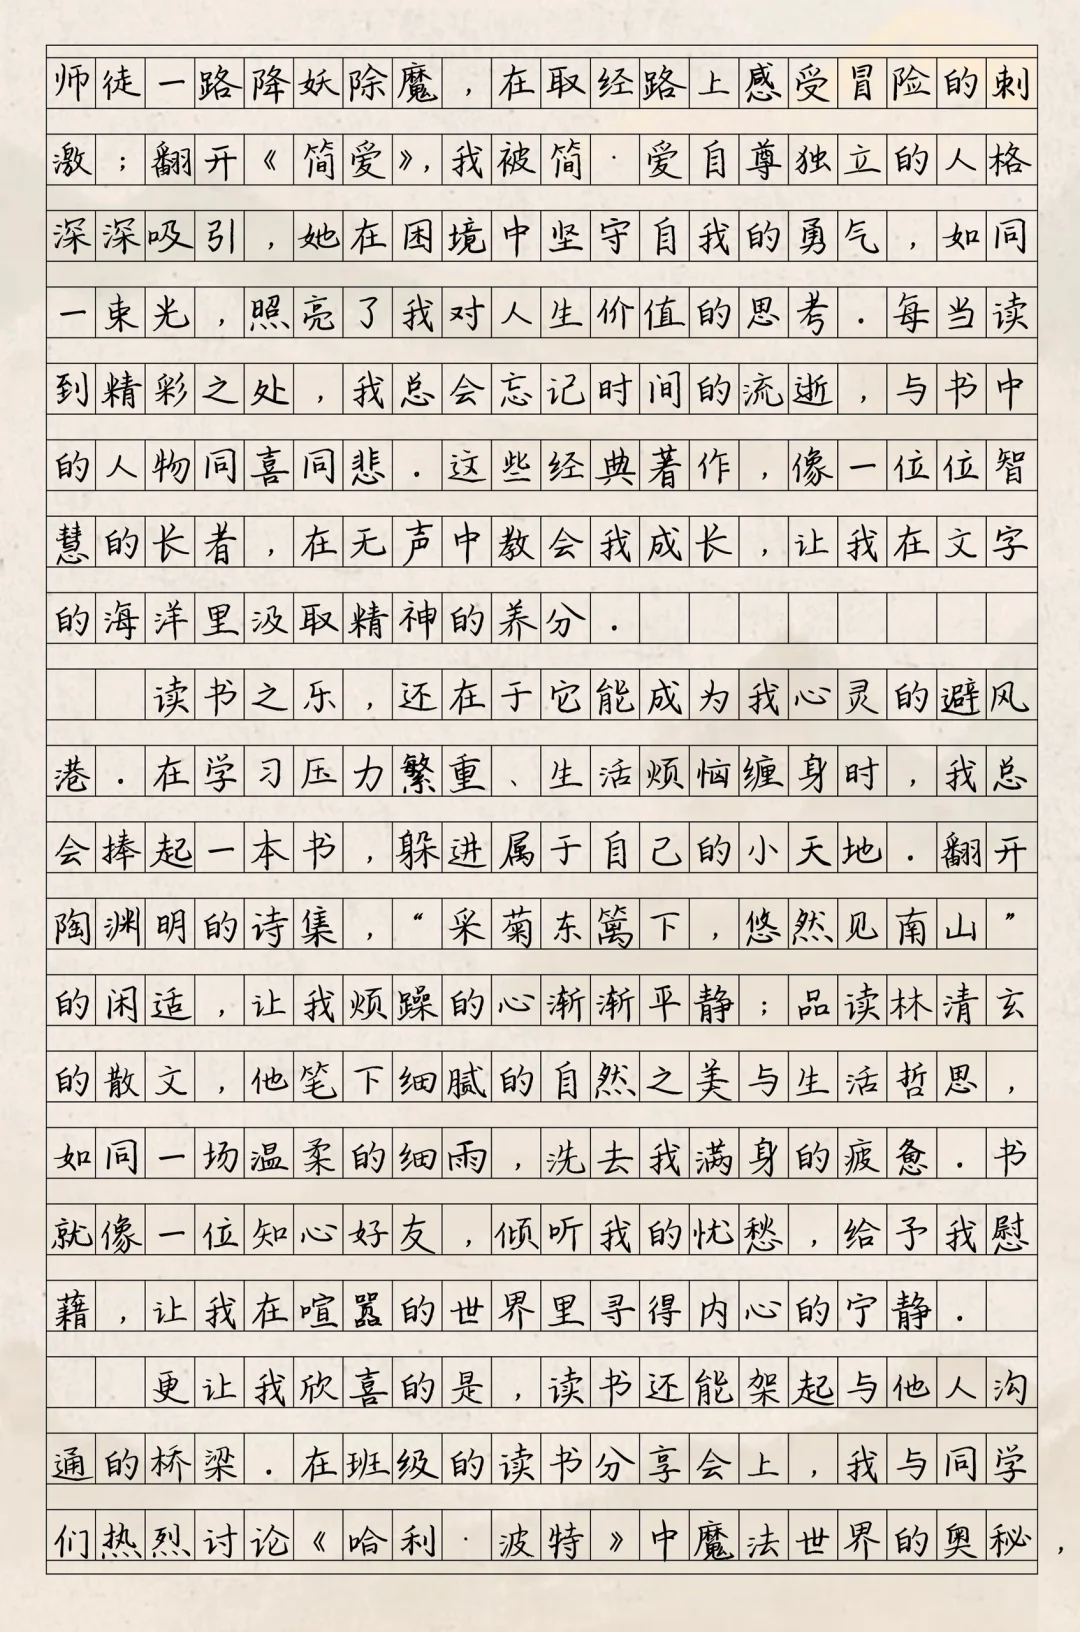 师徒一路降妖除魔，在取经路上感受冒险的刺
激；翻开《简爱》，我被简·爱自尊独立的人格
深深吸引，她在困境中坚守自我的勇气，如同
一束光，照亮了我对人生价值的思考．每当读
到精彩之处，我总会忘记时间的流逝，与书中
的人物同喜同悲．这些经典著作，像一位位智
慧的长者，在无声中教会我成长，让我在文字
的海洋里汲取精神的养分．
读书之乐，还在于它能成为我心灵的避风
港．在学习压力繁重、生活烦恼缠身时，我总
会捧起一本书，躲进属于自己的小天地．翻开
陶渊明的诗集，“采菊东篱下，悠然见南山”
的闲适，让我烦躁的心渐渐平静；品读林清玄
的散文，他笔下细腻的自然之美与生活哲思，
如同一场温柔的细雨，洗去我满身的疲惫．书
就像一位知心好友，倾听我的忧愁，给予我慰
藉，让我在喧嚣的世界里寻得内心的宁静．
更让我欣喜的是，读书还能架起与他人沟
通的桥梁．在班级的读书分享会上，我与同学
们热烈讨论《哈利·波特》中魔法世界的奥秘，